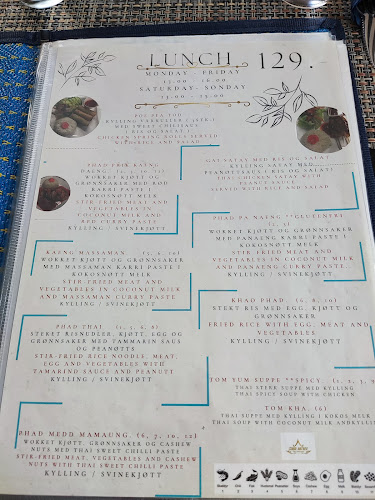 LUNCH 129.
MONDAY - FRIDAY
13.00 - 16.00
SATURDAY- SONDAY
13.00 - 15.00
POE PIA TOD
KYLLING VÅRRULLER
MED SWEET CHILISAUS
( RIS OG SALAT )
CHICKEN SPRING ROLLS SERVED
WITH RICE AND SALAD
GAI SATAY MED RIS OG SALAT
KYLLING SATAY MED
PEANØTTSAUS ( RIS OG SALAT )
THAI CHICKEN SATAY WITH
PEANUT SAUCE
SERVED WITH RICE AND SALAD
PHAD PRIK KAENG
DAENG
WOKKET KJØTT OG
GRØNNSAKER MED RØD
KARRI PASTE I
KOKOSNØTT MILK
STIR FRIED MEAT AND
VEGETABLES IN
COCONUT MILK AND
RED CURRY PAST
KYLLING / SVINEKJØTT
PHAD PA NAENG **GLUTENFRI
WOKKET KJØTT OG GRØNNSAKER
MED PANAENG KARRI PASTE I
KOKOSNØTT MELK
STIR-FRIED MEAT AND
VEGETABLES IN COCONUT MILK
AND PANAENG CURRY PASTE
KYLLING / SVINEKJØTT
KAENG MASSAMAN
WOKKET KJØTT OG GRØNNSAKER
MED MASSAMAN KARRI PASTE I
KOKOSNØTT MILK
STIR-FRIED MEAT AND
VEGETABLES IN COCONUT MILK
AND MASSAMAN CURRY PASTE
KYLLING / SVINEKJØTT
KHAO PHAD
STEKT RIS MED EGG, KJØTT OG
GRØNNSAKER
FRIED RICE WITH EGG, MEAT AND
VEGETABLES
KYLLING / SVINEKJØTT
PHAD THAI
STEKET RISNUDLER, KJØTT, EGG OG
GRØNNSAKER MED TAMMARIN SAUS
OG PEANØTTS
STIR-FRIED RICE NOODLE, MEAT,
EGG AND VEGETABLES WITH
TAMARIND SAUCE AND PEANUTS
KYLLING / SVINEKJØTT
TOM YUM SUPPE **SPICY
THAI STERK SUPPE MED KYLLING
THAI SPICY SOUP WITH CHICKEN
TOM KHA. (6)
THAI SUPPE MED KYLLING I KOKOS MELK
THAI SOUP WITH COCONUT MILK
PHAD MEDD MAMAUNG. (6, 7, 10, 12)
WOKKET KJØTT, GRØNNSAKER OG CASHEW
NUTS MED THAI SWEET CHILLI PASTE
STIR-FRIED MEAT, VEGETABLES AND CASHEW
NUTS WITH THAI SWEET CHILLI PASTE
KYLLING / SVINEKJØTT